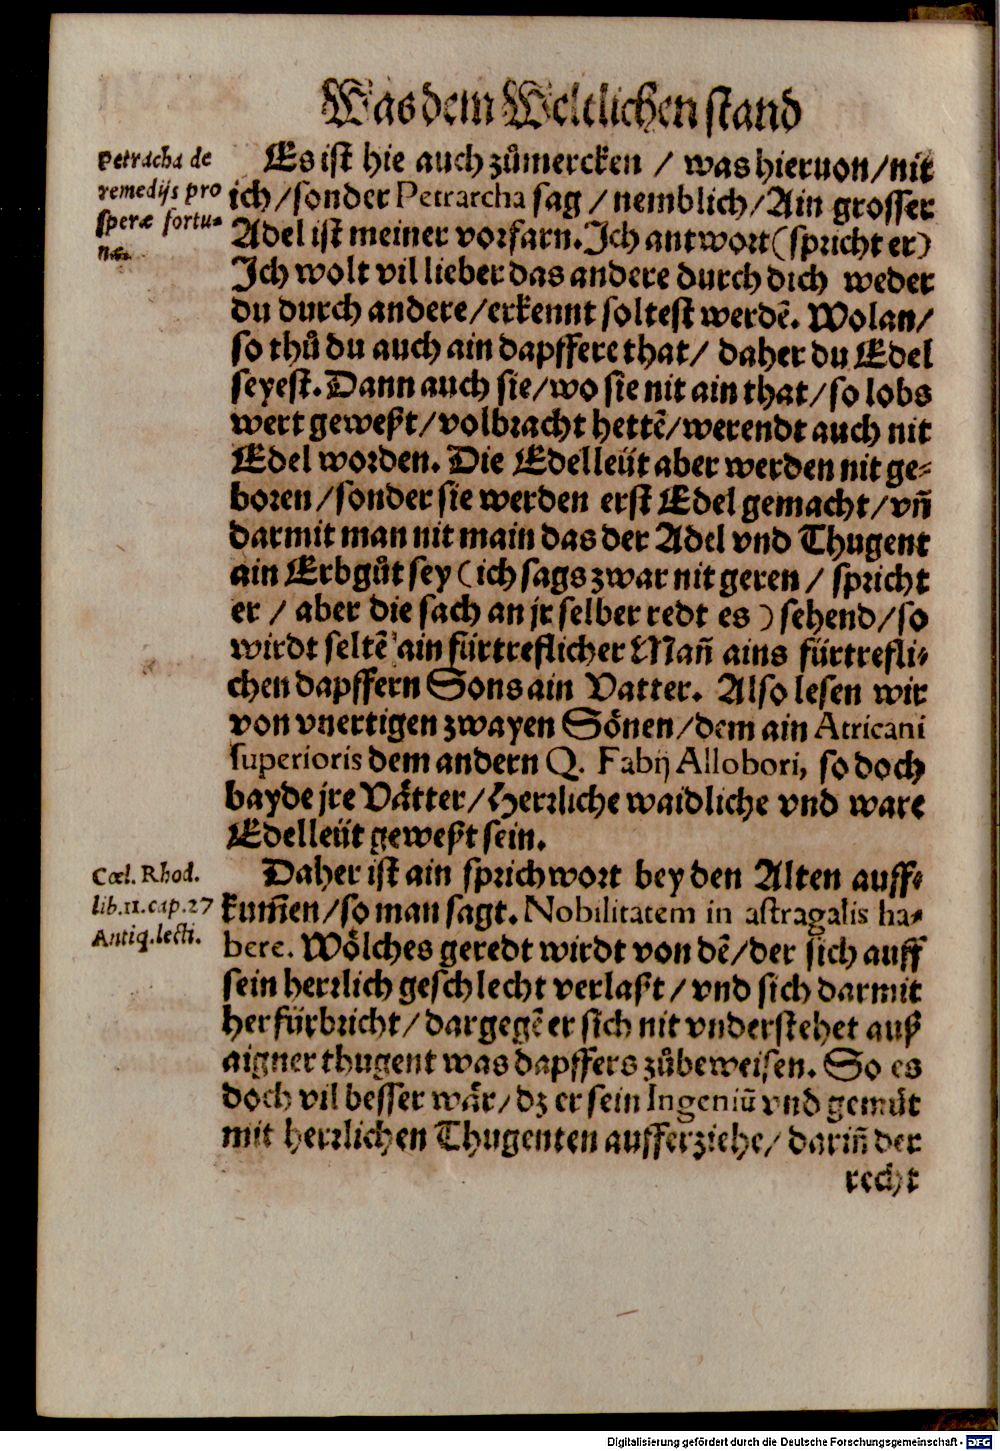 Was dem Weltlichen stand
Petracha de
remedijs pro
speræ fortu-
næ.
Es ist hie auch zůmercken / was hieruon / nit
ich / sonder Petrarcha sag / nemblich / Ain grosser
Adel ist meiner vorfarn. Ich antwort (spricht er)
Ich wolt vil lieber das andere durch dich weder
du durch andere / erkennt soltest werdẽ. Wolan /
so thů du auch ain dapffere that / daher du Edel
seyest. Dann auch sie / wo sie nit ain that / so lobs
wert geweßt / volbracht hettẽ / werendt auch nit
Edel worden. Die Edelleüt aber werden nit ge-
boren / sonder sie werden erst Edel gemacht / vñ
darmit man nit main das der Adel vnd Thugent
ain Erbgůt sey (ich sags zwar nit geren / spricht
er / aber die sach an jr selber redt es) sehend / so
wirdt seltẽ ain fürtreflicher Mañ ains fürtrefli-
chen dapffern Sons ain Vatter. Also lesen wir
von vnertigen zwayen Sönen / dem ain Africani
superioris dem andern Q. Fabij Allobori, so doch
bayde jre Vätter / Herrliche waidliche vnd ware
Edelleüt geweßt sein.
Cœl. Rhod.
lib.11.cap.27
Antiq.lecti.
Daher ist ain sprichwort bey den Alten auff-
kum̃en / so man sagt. Nobilitatem in astragalis ha-
bere. Wölches geredt wirdt von dẽ / der sich auff
sein herrlich geschlecht verlaßt / vnd sich darmit
herfürbricht / dargegẽ er sich nit vnderstehet auß
aigner thugent was dapffers zůbeweisen. So es
doch vil besser wär / dz er sein Ingeniũ vnd gemüt
mit herrlichen Thugenten aufferziehe / dariñ der
recht
Digitalisierung gefördert durch die Deutsche Forschungsgemeinschaft - DFG